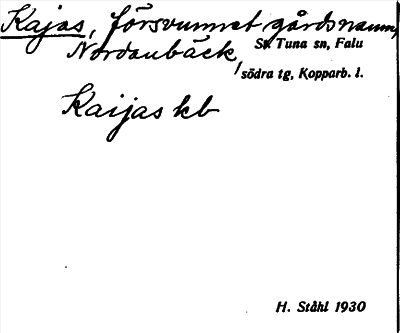 Kajas, försvunnet gårdsnamn,
Nordanbäck, St. Tuna sn, Falu
södra tg, Kopparb. l.
Kaijas kb
H. Ståhl 1930